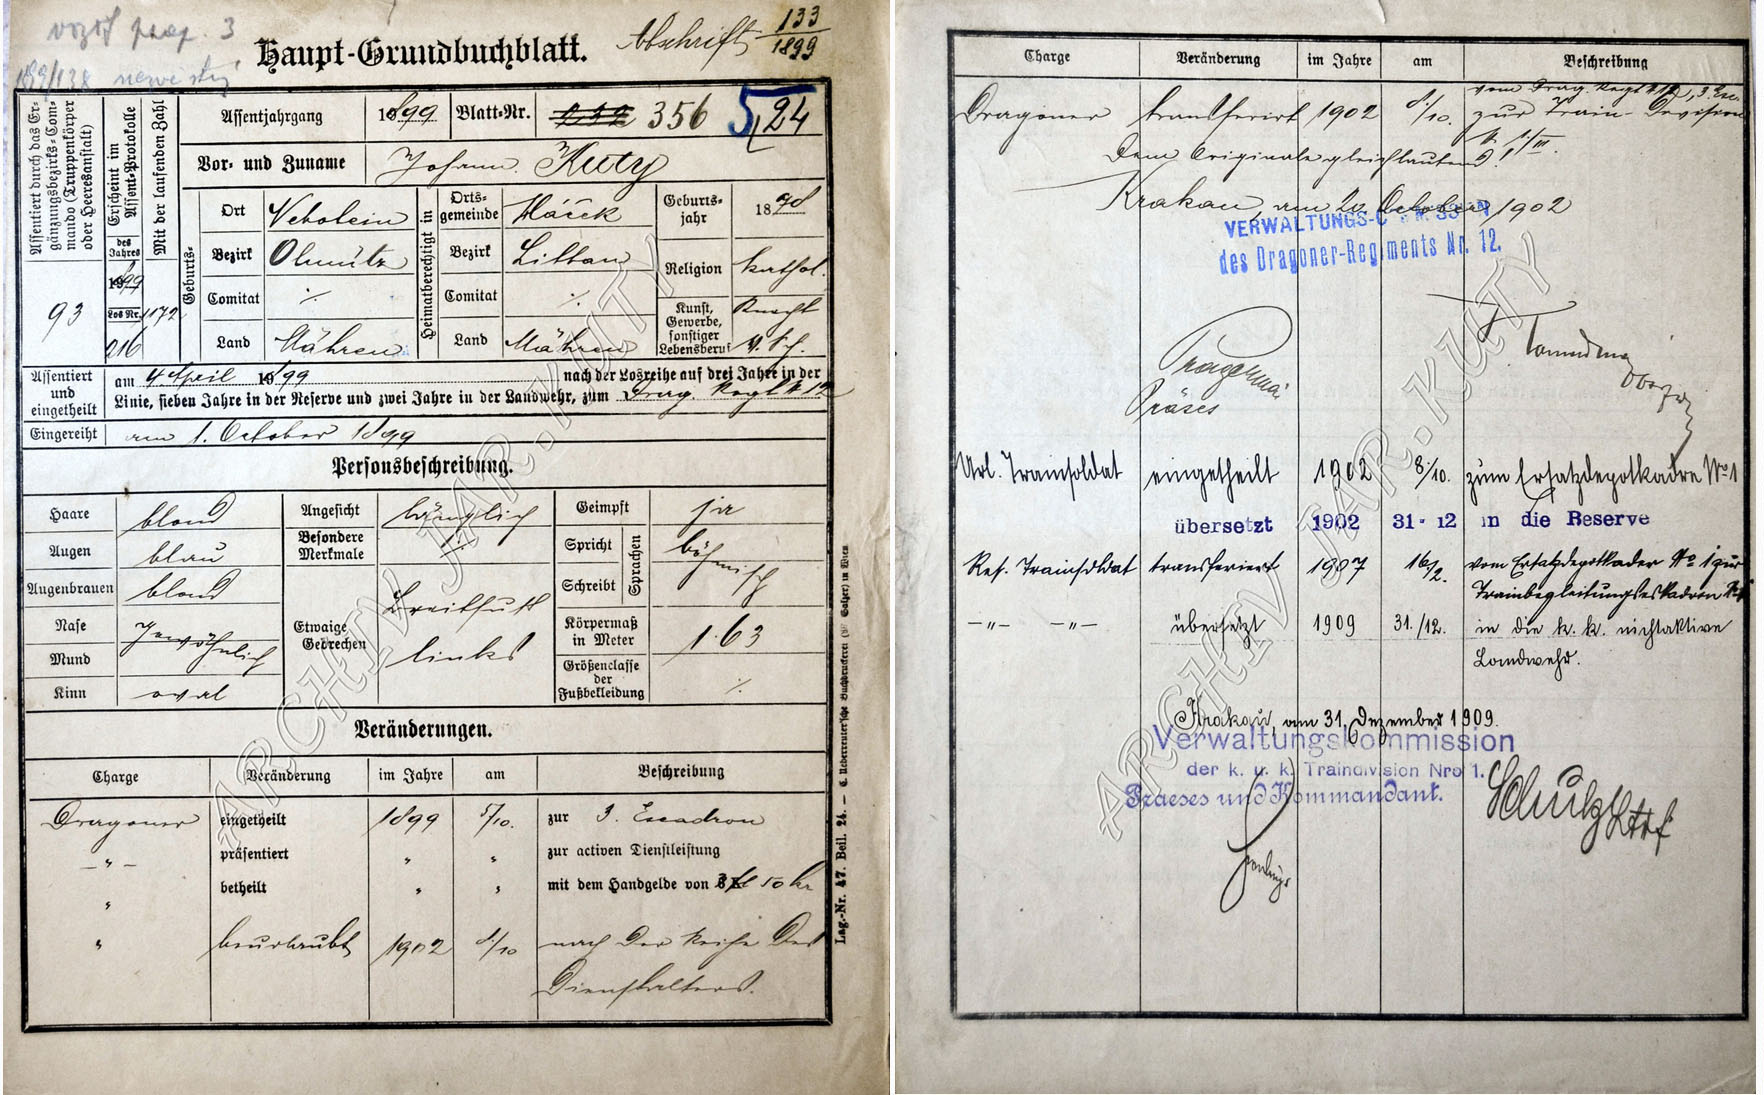 Haupt-Grundbuchblatt.
Abschrift 133/1899
Assentiert durch das Ergänzungsbezirks-Commando (Truppenkörper oder Heeresanstalt)
93
Erscheint im Assent-Protokolle
des Jahres
1899
Los Nr.
216
Mit der laufenden Zahl
1172
Assentjahrgang 1899 Blatt-Nr. 356 5/24
Vor- und Zuname Johann Kuty
Geburts-
Ort Nebotein
Bezirk Olmütz
Comitat ·/·
Land Mähren
Heimatberechtigt in
Ortsgemeinde Háček
Bezirk Littau
Comitat ·/·
Land Mähren
Geburtsjahr 1878
Religion kathol.
Kunst, Gewerbe, sonstiger Lebensberuf Knecht
Assentiert und eingetheilt
am 4. April 1899 nach der Losreihe auf drei Jahre in der
Linie, sieben Jahre in der Reserve und zwei Jahre in der Landwehr, zum Drag. Regt N 12
Eingereiht am 1. October 1899
Personsbeschreibung.
Haare blond
Augen blau
Augenbrauen blond
Nase
Mund gewöhnlich
Kinn oval
Angesicht länglich
Besondere Merkmale ·/·
Etwaige Gebrechen Breitfuß links
Geimpft ja
Spricht
Schreibt
Sprachen böhmisch
Körpermaß in Meter 1·63
Größenclasse der Fußbekleidung ·/·
Veränderungen.
Charge Veränderung im Jahre am Beschreibung
Dragoner eingetheilt 1899 5/10. zur 3. Escadron
—„— präsentiert „ „ zur activen Dienstleistung
„ betheilt „ „ mit dem Handgelde von 3 fl 50 kr
„ beurlaubt 1902 8/10 nach der Reihe des
Dienstalters.
Lag.-Nr. 47. Beil. 24. — C. Ueberreuter'sche Buchdruckerei (M. Salzer) in Wien
Charge Veränderung im Jahre am Beschreibung
vom Drag. Regt N 12, 3. Esc.
Dragoner transferirt 1902 8/10. zur Train-Division
N. 1/III.
Dem Originale gleichlautend.
Krakau, am 20 October 1902
VERWALTUNGS-C
des Dragoner-Regiments Nr. 12.
Präses
Url. Trainsoldat eingetheilt 1902 8/10. zum Ersatzdepotkadre No 1
übersetzt 1902 31-12 in die Reserve
Res. Trainsoldat transferiert 1907 16/2. vom Ersatzdepotkader No 1 zur
Trainbegleitungseskadron
—„— —„— übersetzt 1909 31./12. in die k. k. nichtaktive
Landwehr.
Krakau, am 31. Dezember 1909.
Verwaltungskommission
der k. u. k. Traindivision Nro 1.
Praeses und Kommandant.
ARCHIV JAR. KUTY
ARCHIV JAR. KUTY